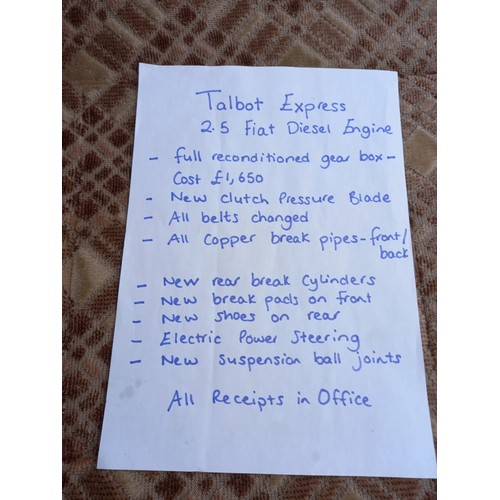 Talbot Express
2.5 Fiat Diesel Engine
- full reconditioned gear box -
Cost £1,650
- New clutch Pressure Blade
- All belts changed
- All Copper break pipes - front/
back
- New rear break Cylinders
- New break pads on front
- New shoes on rear
- Electric Power Steering
- New suspension ball joints
All Receipts in Office